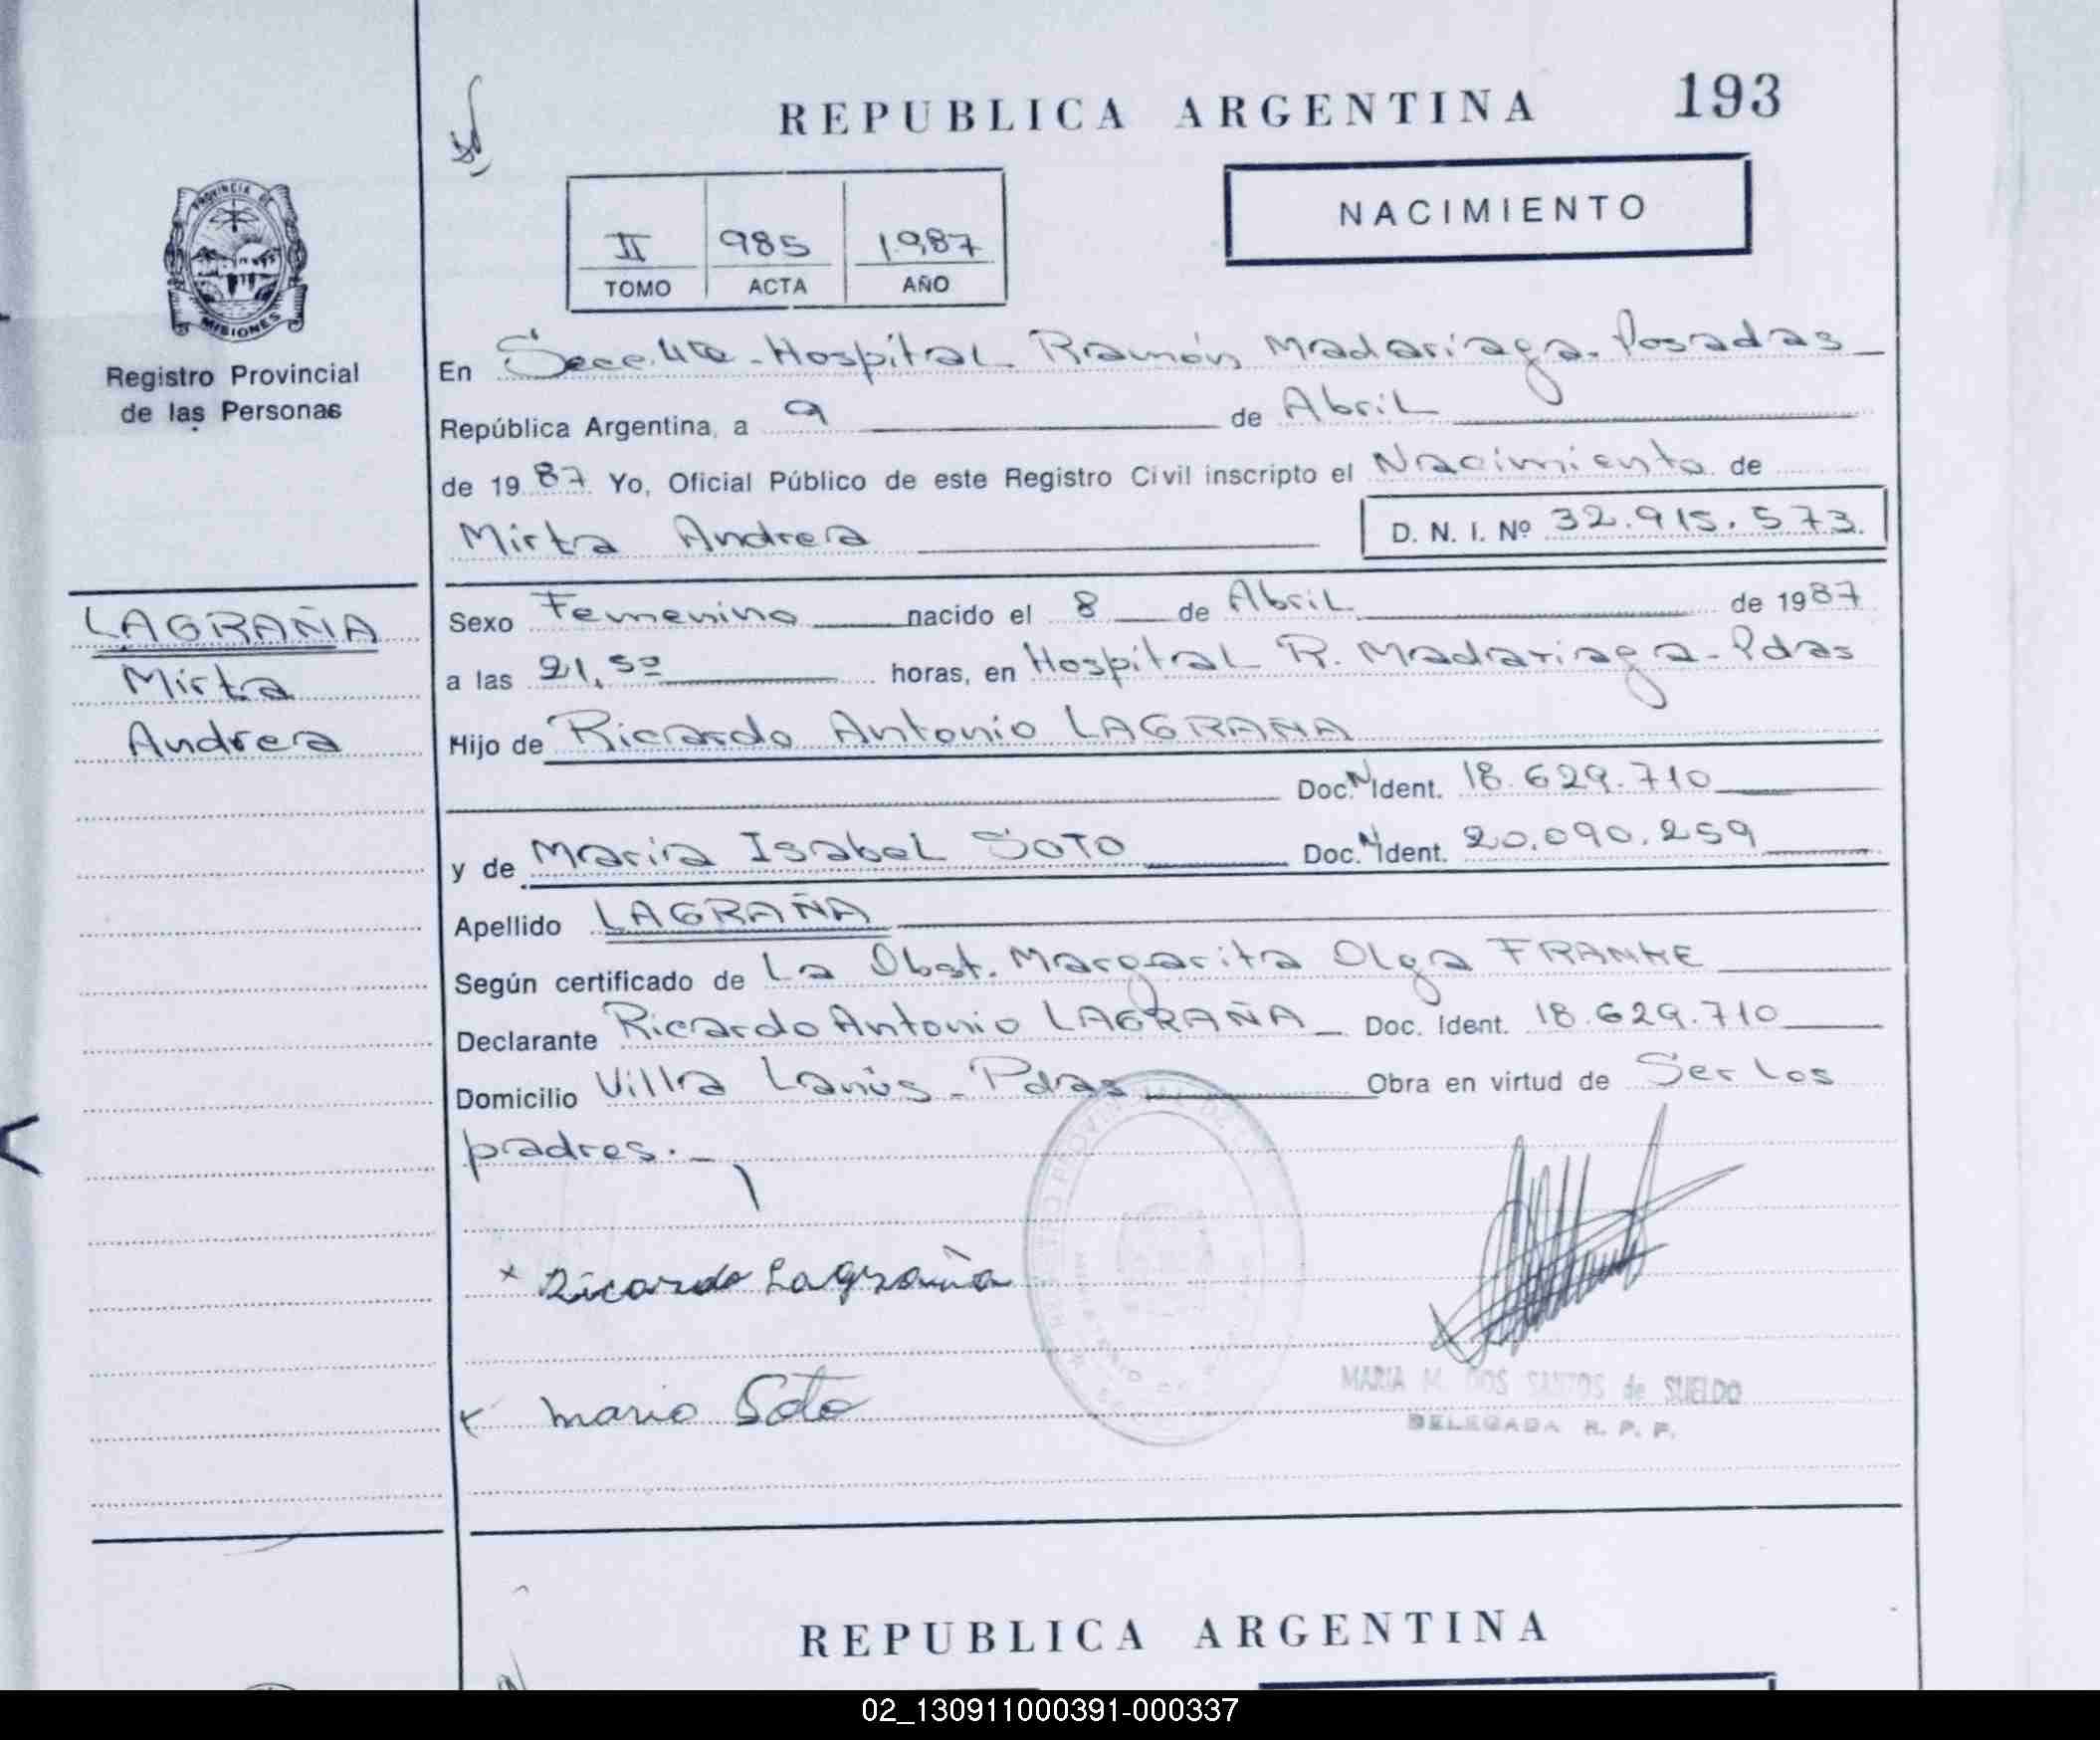 REPUBLICA ARGENTINA 193
NACIMIENTO
II 985 1987
TOMO ACTA AÑO
PROVINCIA DE
MISIONES
Registro Provincial
de las Personas
En Secc. 4ta - Hospital Ramón Madariaga - Posadas
República Argentina, a 9 de Abril
de 19 87 Yo, Oficial Público de este Registro Civil inscripto el Nacimiento de
Mirta Andrea D. N. I. Nº 32.915.573.
LAGRAÑA
Mirta
Andrea
Sexo Femenino nacido el 8 de Abril de 1987
a las 21,50 horas, en Hospital R. Madariaga - Pdas
Hijo de Ricardo Antonio LAGRAÑA
Doc. N Ident. 18.629.710
y de María Isabel SOTO Doc. N Ident. 20.090.259
Apellido LAGRAÑA
Según certificado de La Obst. Margarita Olga FRANKE
Declarante Ricardo Antonio LAGRAÑA - Doc. Ident. 18.629.710
Domicilio Villa Lanús - Pdas Obra en virtud de Ser los
padres.-
x Ricardo Lagraña
x Maria Soto
MARIA M. DOS SANTOS de SUELDO
DELEGADA R. P. P.
REPUBLICA ARGENTINA
02_130911000391-000337